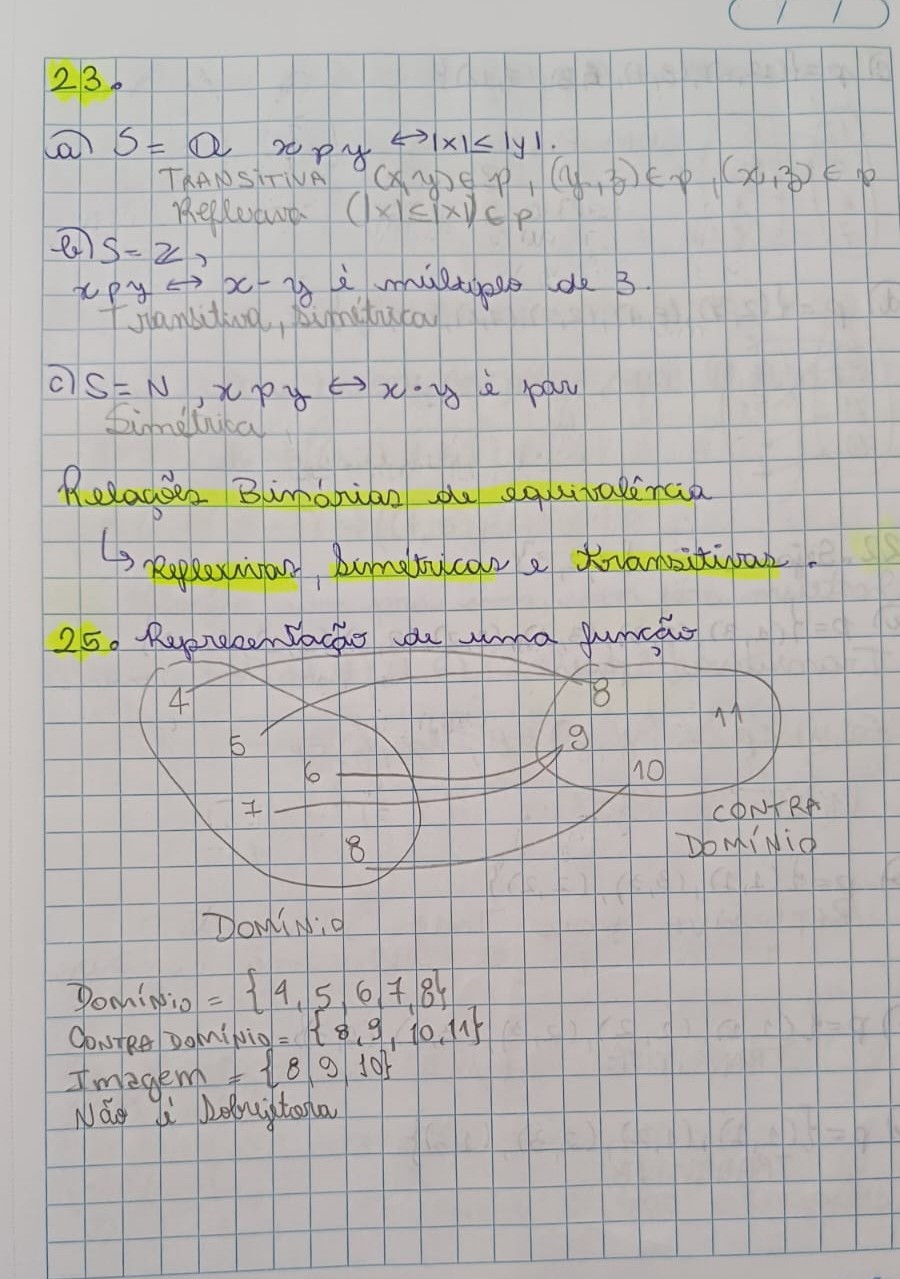 / /
23.
a) S = Q x ρ y ↔ |x| ≤ |y|.
TRANSITIVA (x,y) ∈ ρ, (y,z) ∈ ρ, (x,z) ∈ ρ
Reflexiva (|x| ≤ |x|) ∈ ρ
b) S = Z,
x ρ y ↔ x - y é múltiplo de 3.
Transitiva, Simétrica
c) S = N, x ρ y ↔ x · y é par
Simétrica
Relações Binárias de equivalência
↳ Reflexivas, Simétricas e transitivas.
25. Representação de uma função
4 8
5 9 11
6 10
7
8
CONTRA
DOMÍNIO
DOMÍNIO
DOMÍNIO = {4, 5, 6, 7, 8}
CONTRA DOMÍNIO = {8, 9, 10, 11}
Imagem = {8, 9, 10}
Não é Sobrejtora